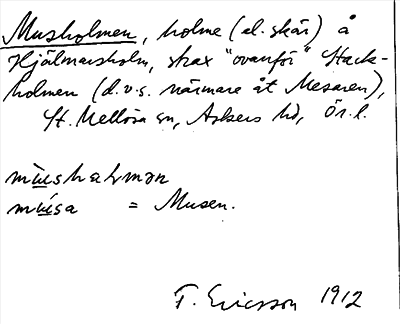 Musholmen, holme (el. skär) å
Hjälmarsholm, strax "ovanför" Stack-
holmen (d.v.s. närmare åt Mesaren),
St. Mellösa sn, Askers hd, Ör. l.
musholmen
musa = Musen.
T. Ericsson 1912